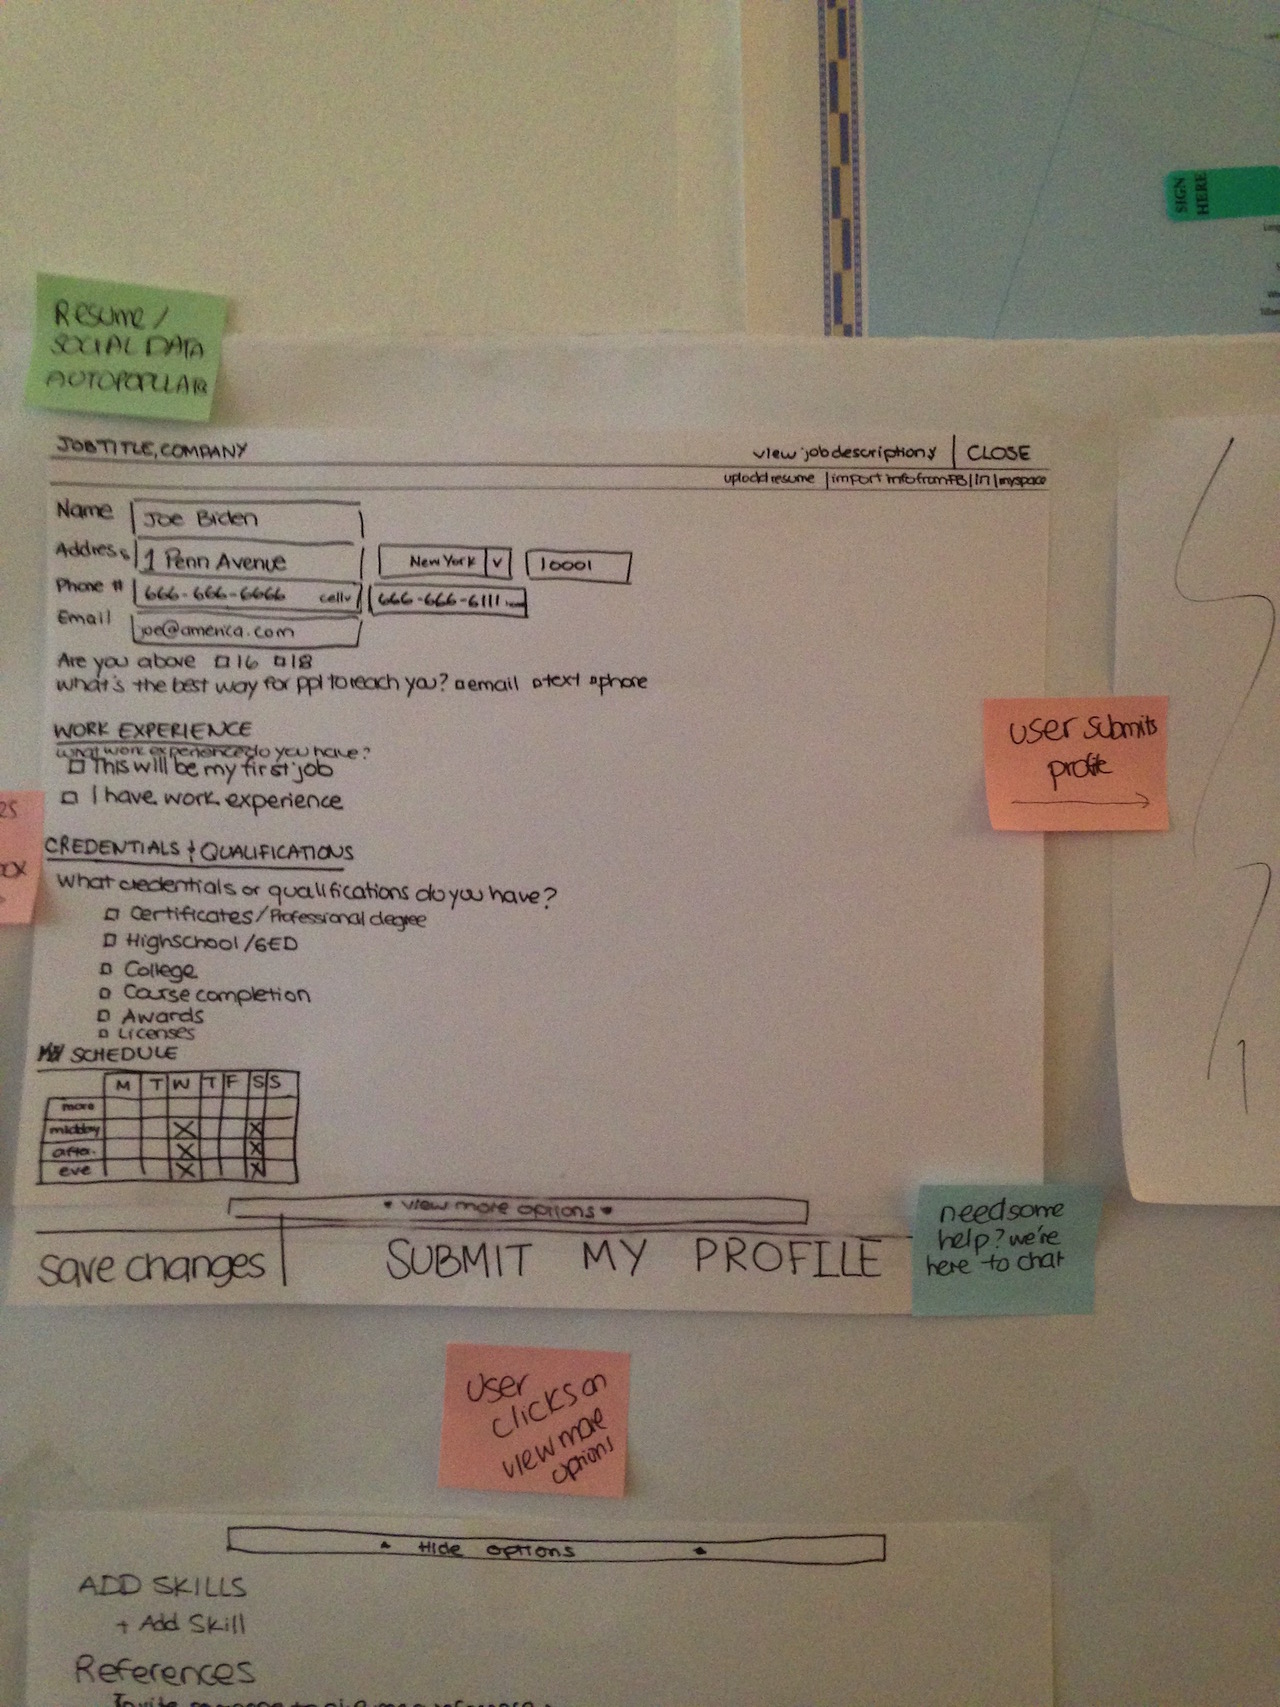 SIGN
HERE
Resume /
SOCIAL DATA
JOBTITLE, COMPANY
view job descriptions | CLOSE
upload resume | import info from FB | in | myspace
Name Joe Biden
Address 1 Penn Avenue New York v 10001
Phone # 666-666-6666 cell v 666-666-6111
Email joe@america.com
Are you above 16 18
what's the best way for ppl to reach you? email text phone
WORK EXPERIENCE
what work experience do you have?
This will be my first job
I have work experience
user submits
profile
CREDENTIALS & QUALIFICATIONS
What credentials or qualifications do you have?
Certificates/Professional degree
Highschool/GED
College
Course completion
Awards
Licenses
MY SCHEDULE
M T W T F S S
midday X X
X X
eve X X
view more options
save changes
SUBMIT MY PROFILE
need some
help? we're
here to chat
user
clicks on
view more
options
Hide options
ADD SKILLS
+ Add Skill
References